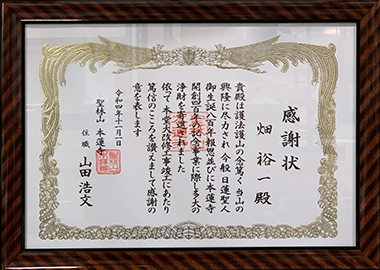 感謝状
畑裕一殿
貴殿は護法護山の念篤く当山の
興隆に尽力され今般日蓮聖人
御生誕八百年報恩並びに本蓮寺
開創四百年記念事業に際し多大の
浄財を寄進されました
依て本堂大改修工事竣工にあたり
篤信のこころを讃えまして感謝の
意を表します
令和四年十一月一日
聖林山 本蓮寺
住職 山田浩文